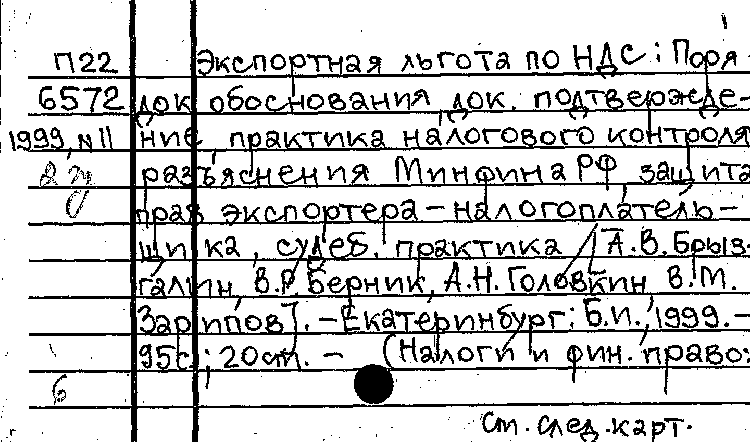 П22 Экспортная льгота по НДС: Поря-
6572 док обоснования, док. подтвержде-
1999, N11 ние, практика налогового контроля,
разъяснения Минфина РФ, защита
прав экспортера-налогоплатель-
щика, судеб. практика / [А.В. Брыз-
галин, В.Р. Берник, А.Н. Головкин, В.М.
Зарипов]. - Екатеринбург: Б.и., 1999. -
95с.; 20см. - (Налоги и фин. право:
6
См. след. карт.